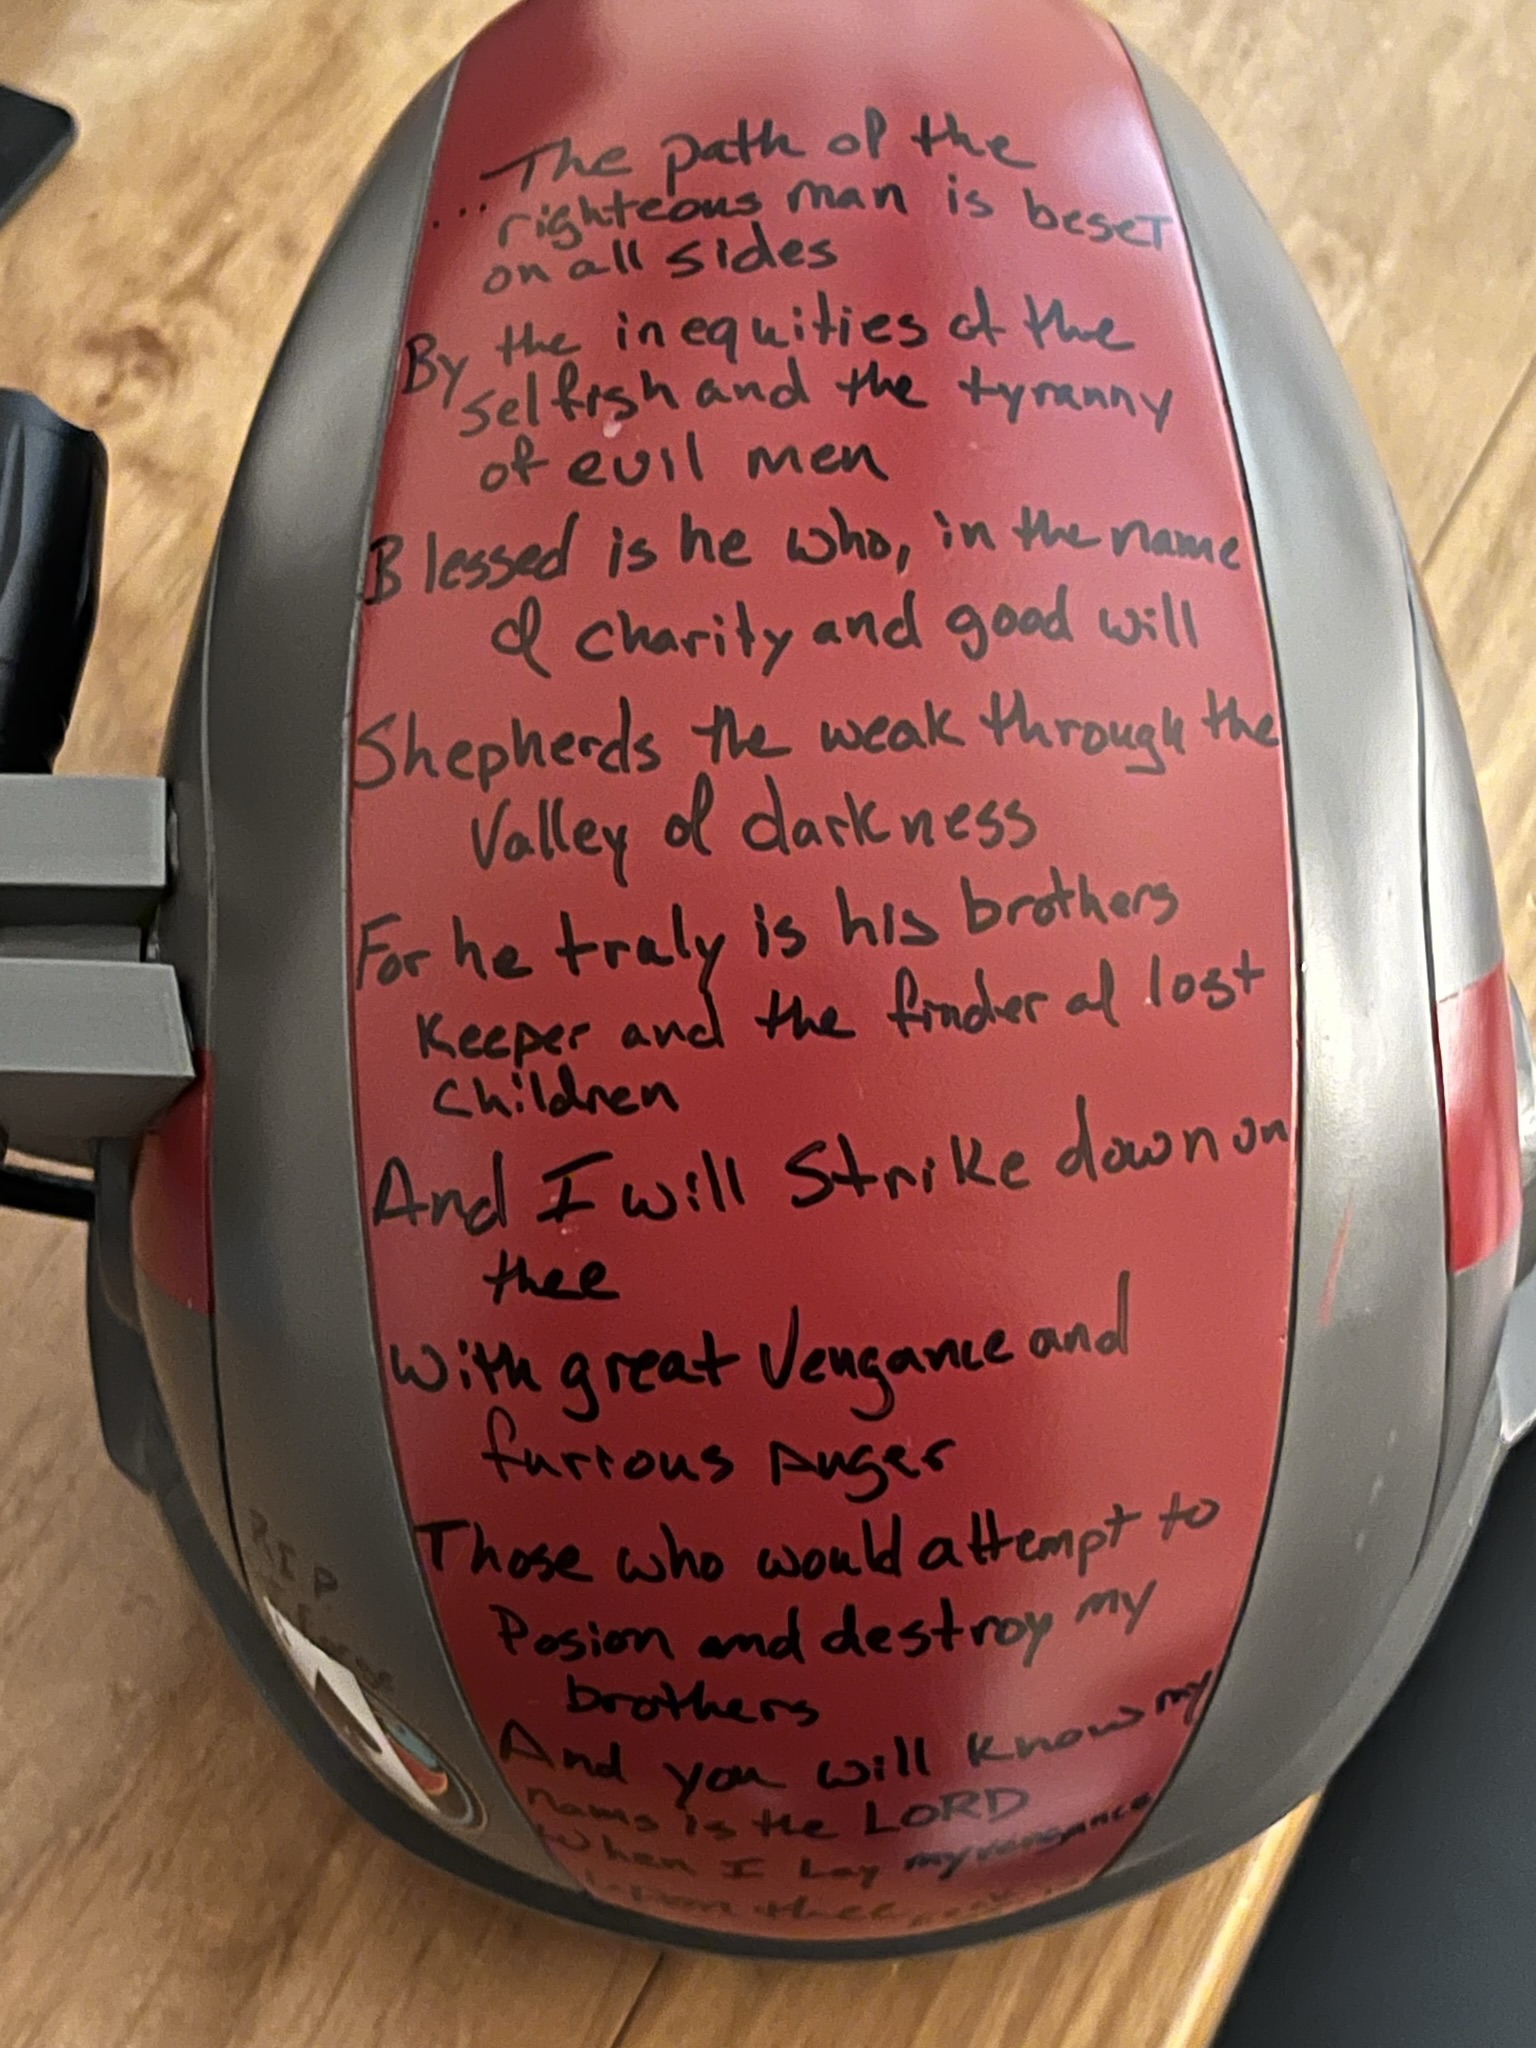 The path of the
... righteous man is beset
on all sides
By the inequities of the
selfish and the tyranny
of evil men
Blessed is he who, in the name
of charity and good will
Shepherds the weak through the
Valley of darkness
For he truly is his brothers
keeper and the finder of lost
children
And I will Strike down on
thee
with great Vengance and
furious Anger
Those who would attempt to
Posion and destroy my
brothers
And you will know my
name is the LORD
when I Lay my vengance
upon thee
RIP